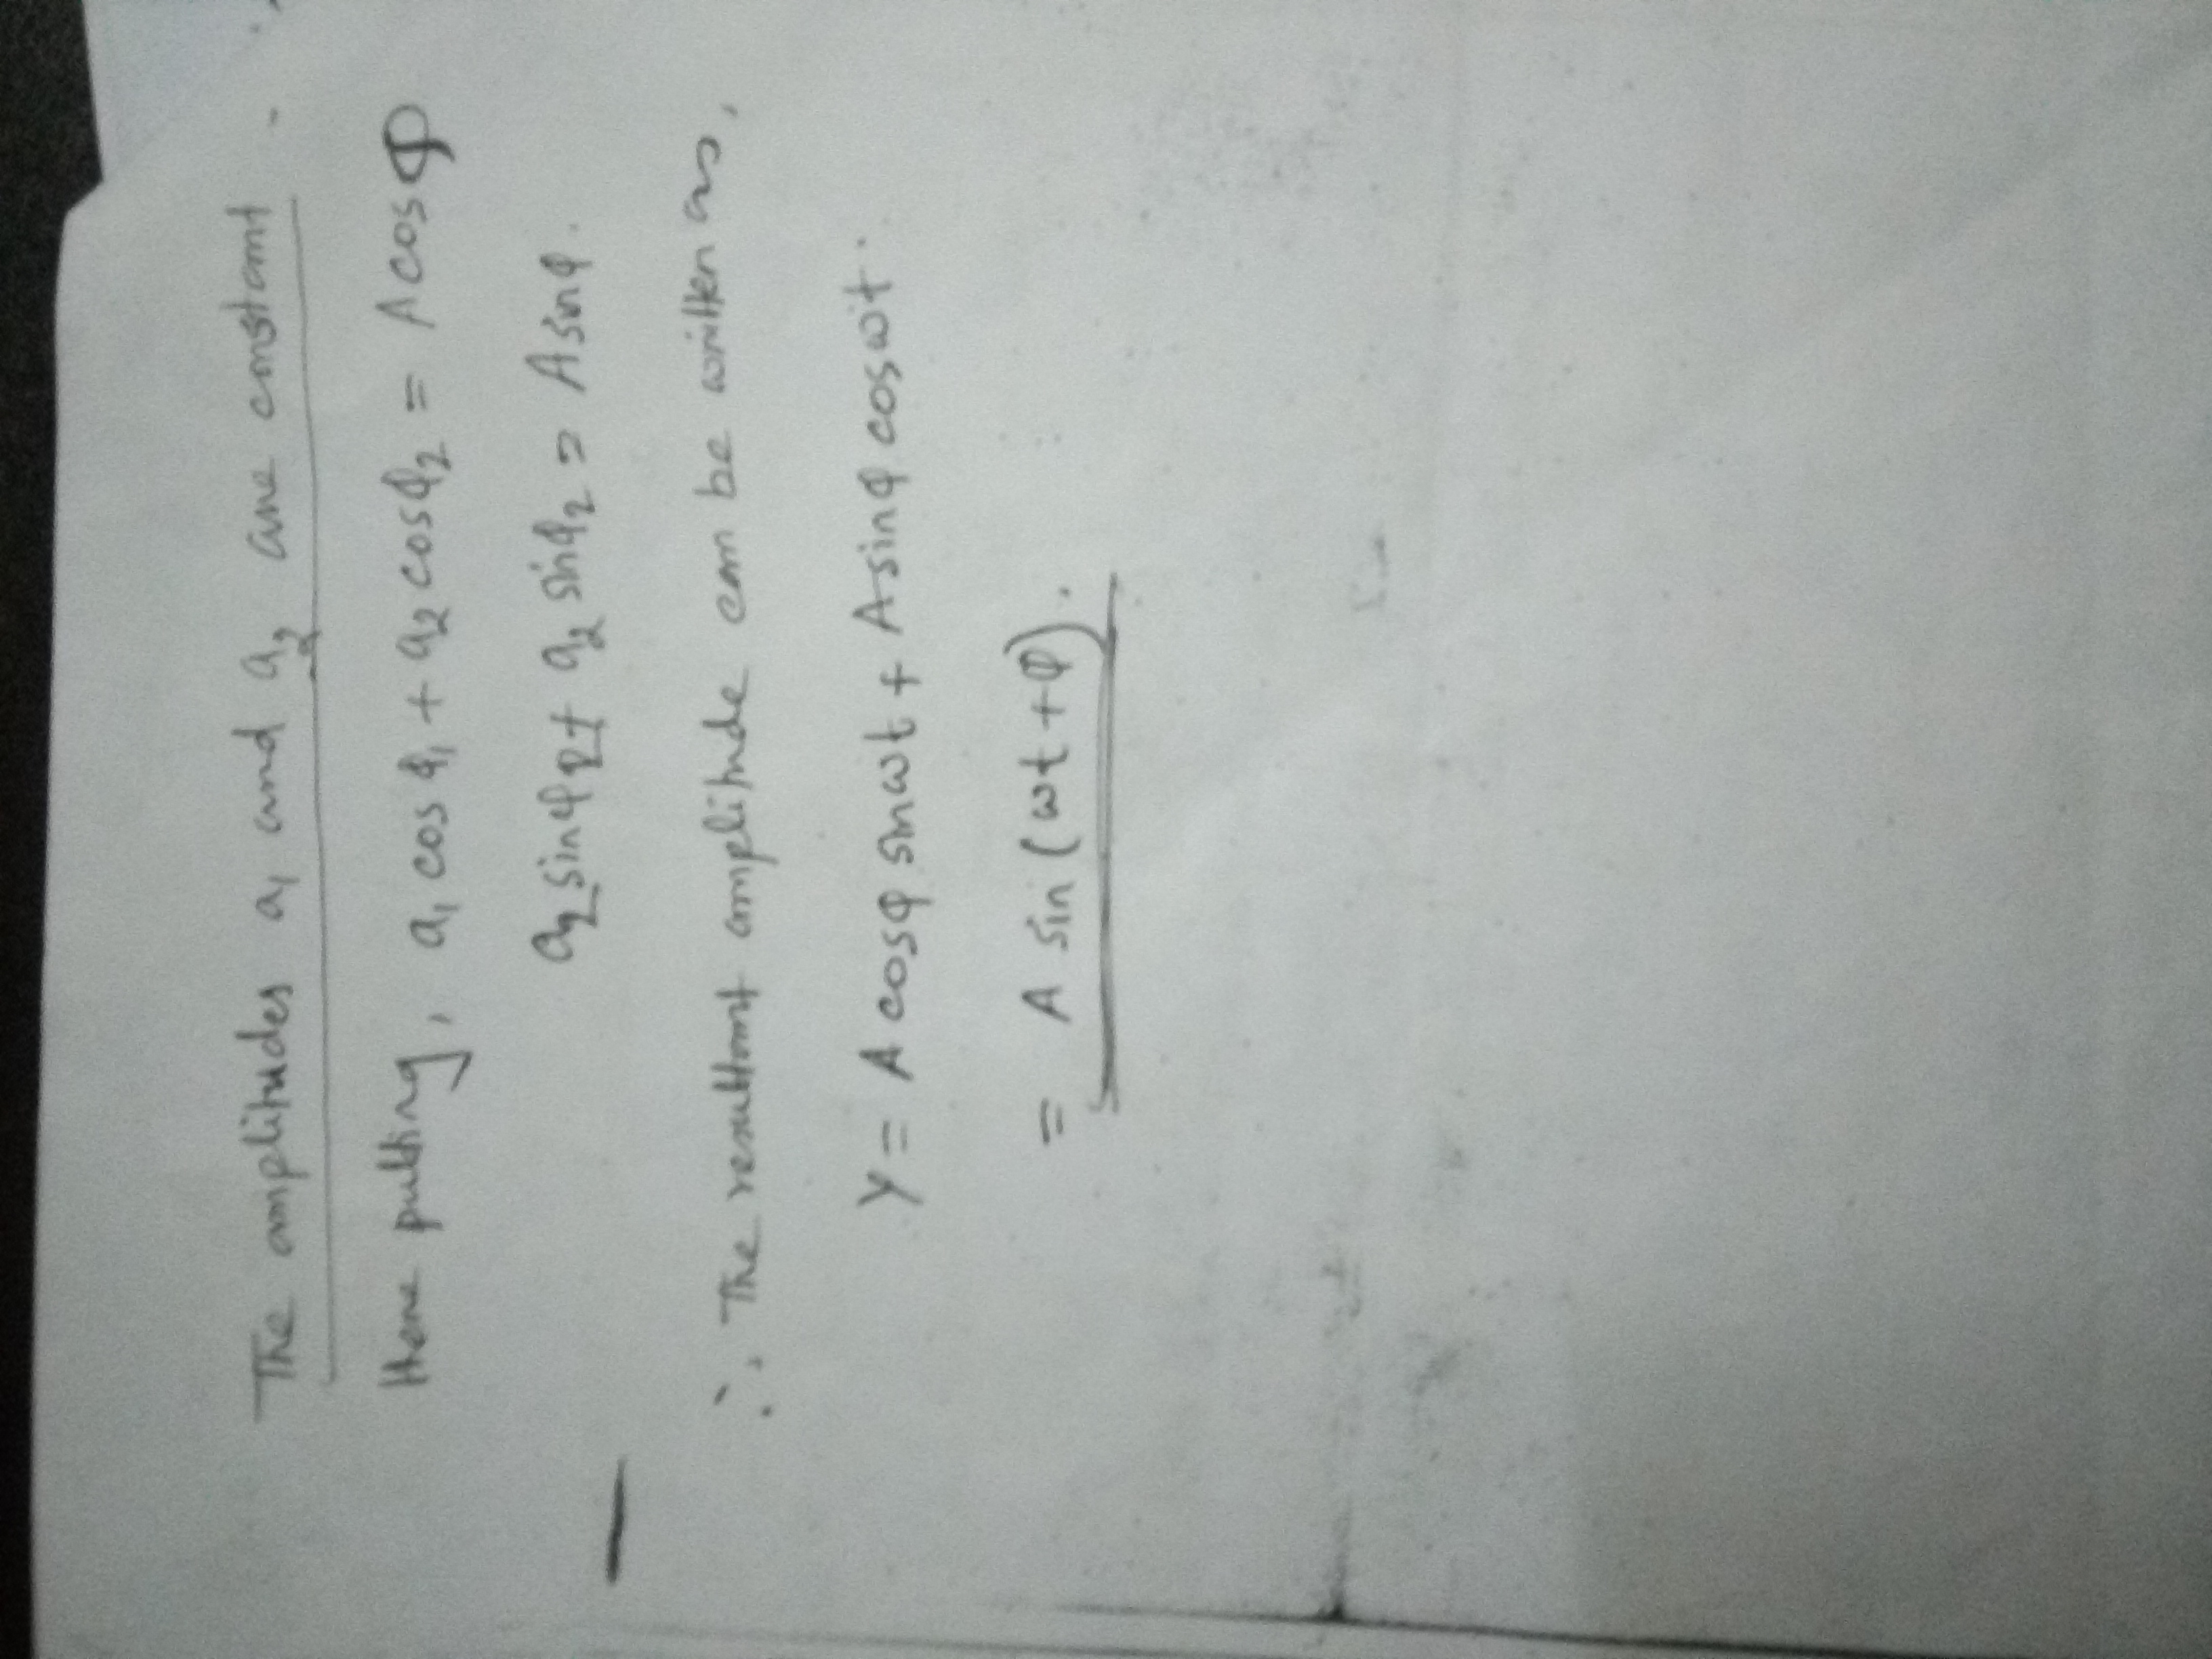 The amplitudes a₁ and a₂ are constant
Here putting, a₁ cos φ₁ + a₂ cos φ₂ = A cos φ
a₂ sin φ₂ + a₂ sin φ₂ = A sin φ.
∴ The resultant amplitude can be written as,
Y = A cos φ sin ωt + A sin φ cos ωt.
= A sin (ωt + φ).